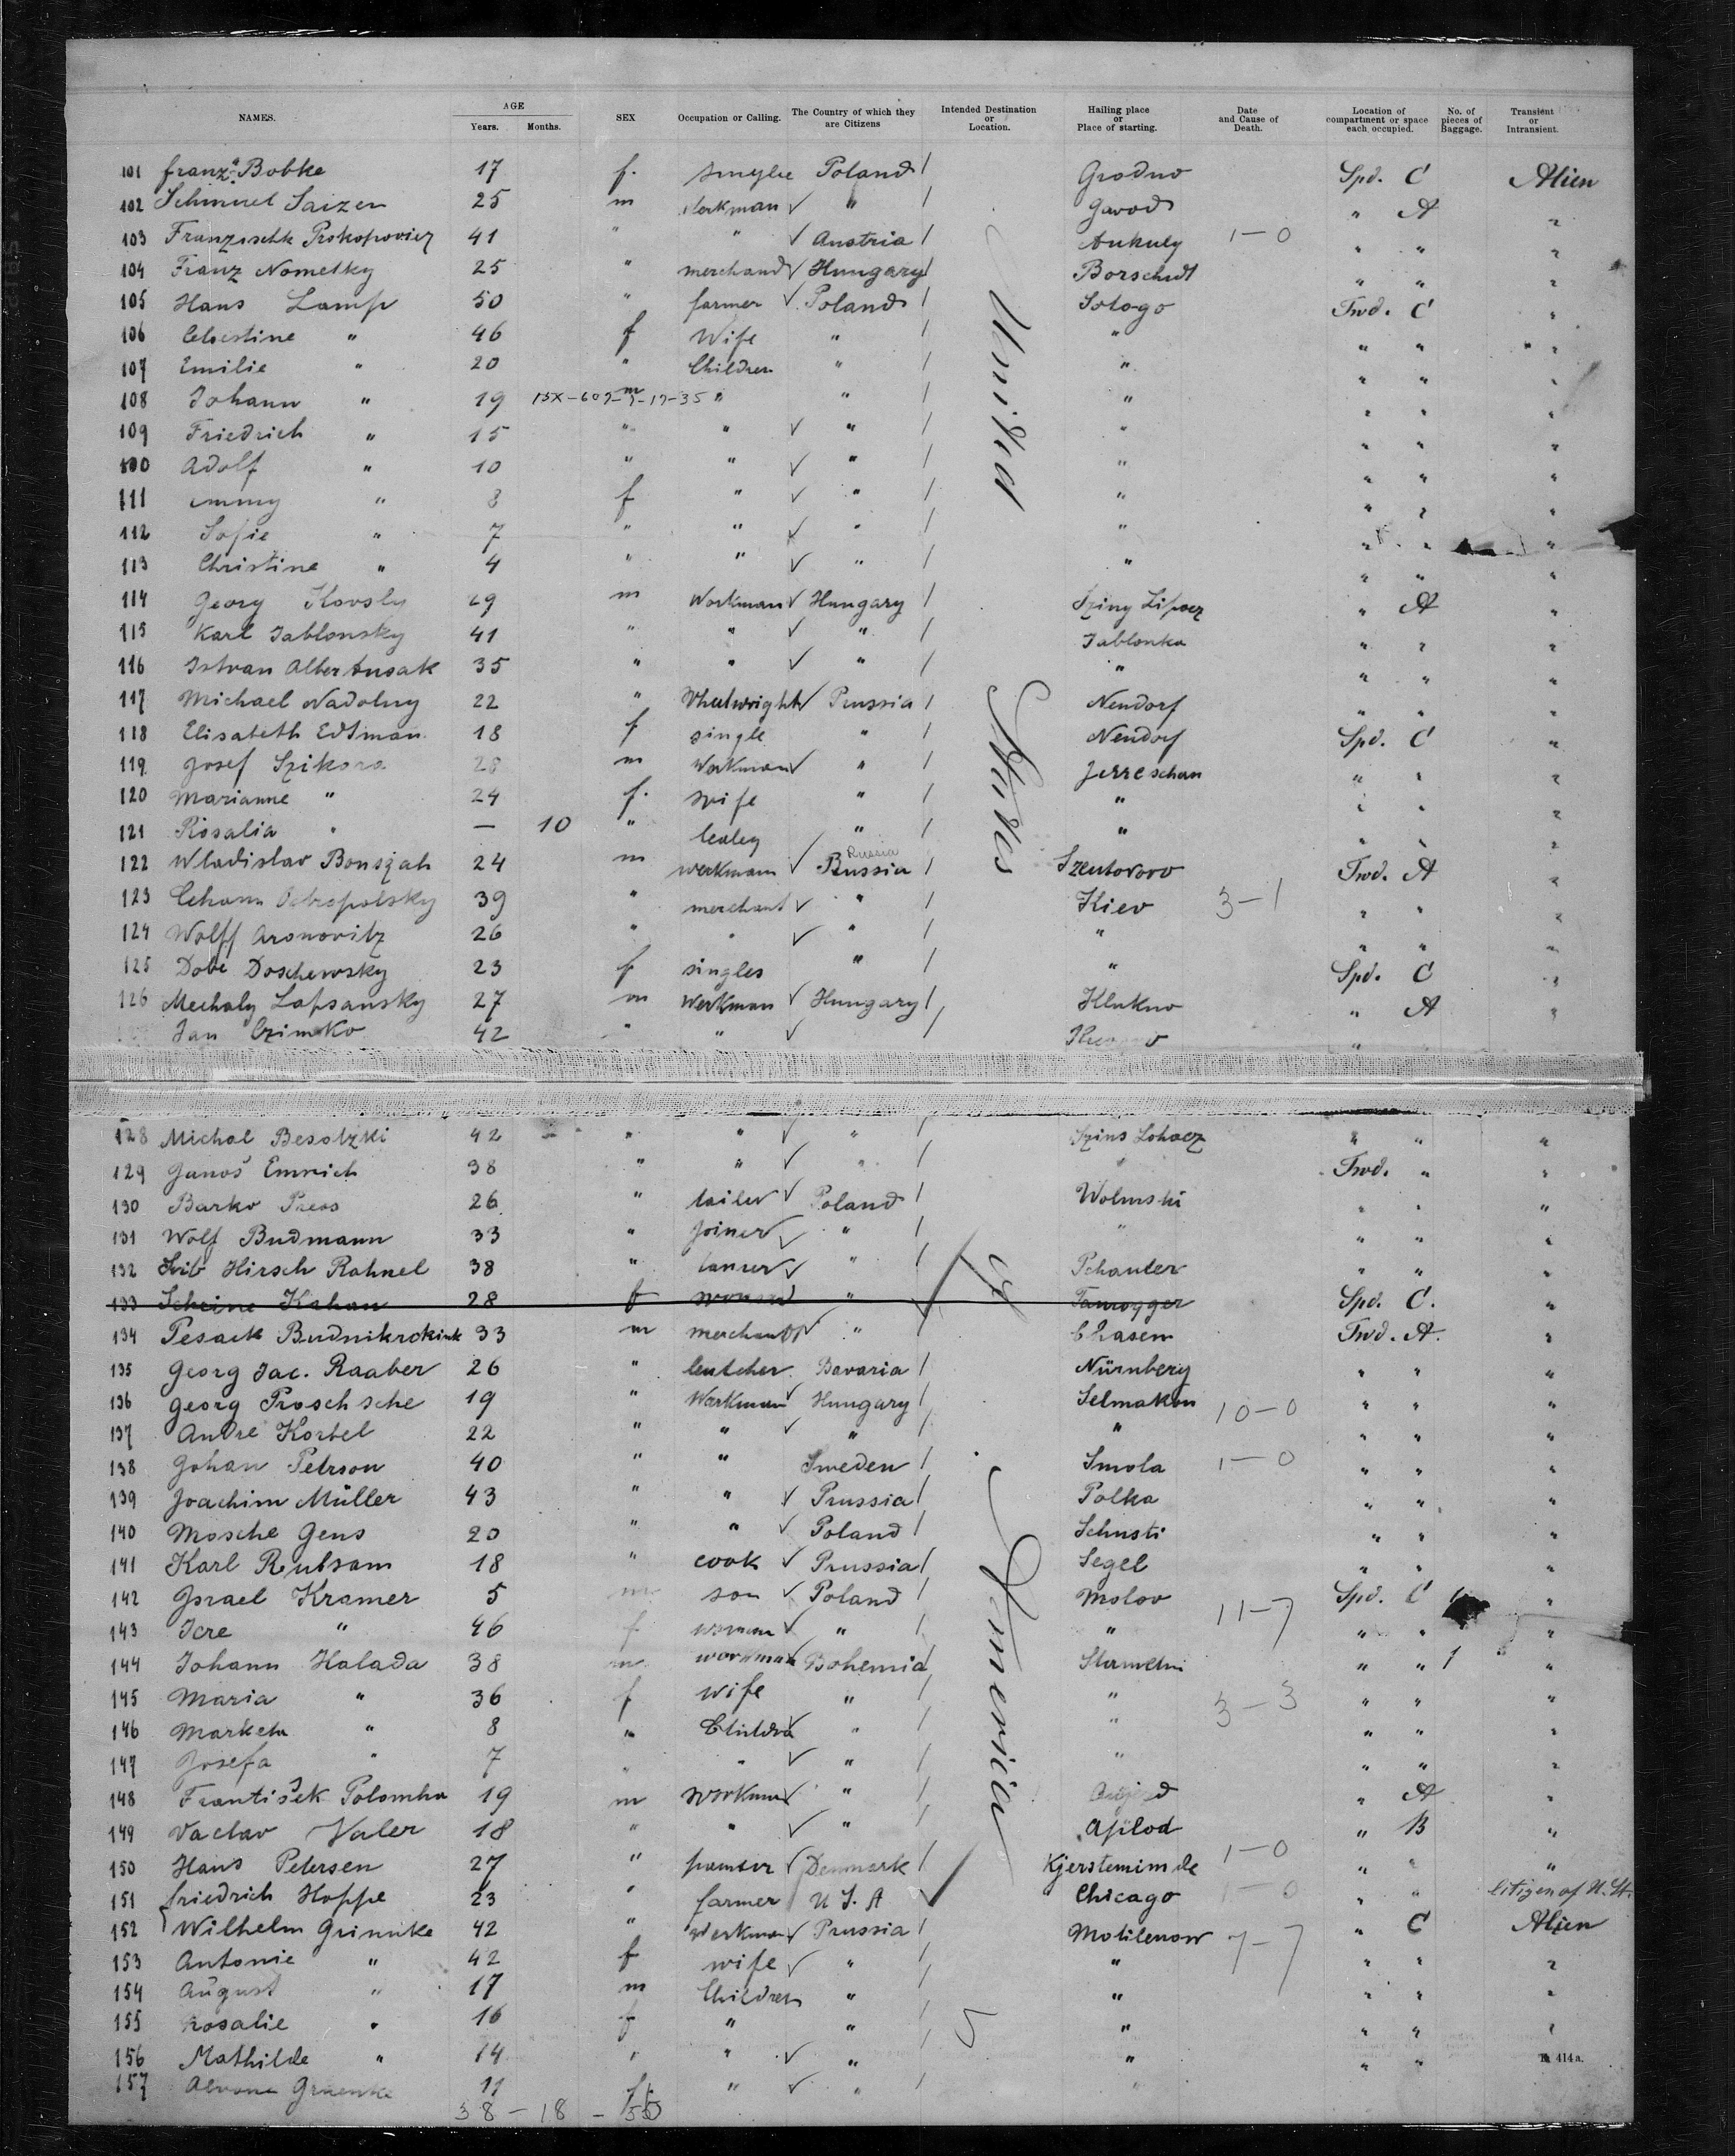 NAMES. AGE Years. Months. SEX Occupation or Calling. The Country of which they are Citizens Intended Destination or Location. Hailing place or Place of starting. Date and Cause of Death. Location of compartment or space each occupied. No. of pieces of Baggage. Transient or Intransient.
101 Franz Bobke 17 f. Poland / Grodno Spd. C Alien
102 Schmuel Saizen 25 m Workman ✓ " / " A "
103 Prokopovicz 41 " " ✓ Austria / 1-0 " " "
104 Franz Nometky 25 " merchand ✓ Hungary / " " "
105 Hans Lamp 50 " farmer ✓ Poland / Sologo Twd. C "
106 Celestine " 46 f Wife " / " " " "
107 Emilie " 20 " Children " / " " " "
108 Johann " 19 m " " / " " " "
109 Friedrich " 15 " " ✓ " / " " " "
Adolf " 10 " " ✓ " / " " " "
111 Emmy " 8 f " ✓ " / " " " "
112 Sofie " 7 " " ✓ " / " " " "
113 Christine " 4 " " ✓ " / " " " "
114 Georg Kovsly 29 m Workman ✓ Hungary / " A "
115 Karl Jablonsky 41 " " ✓ " / Jablonka " " "
116 Istvan 35 " " ✓ " / " " " "
117 Michael Nadolny 22 " Wheelwright ✓ Prussia / Nendorf " " "
118 Elisabeth Edtman 18 f single " / Nendorf Spd. C "
119 Josef Szikora 28 m Workman ✓ " / Jerreschan " " "
120 Marianne " 24 f. wife " / " " " "
121 Rosalia " — 10 " " / " " " "
122 Wladislav 24 m werkmann ✓ Russia Russia / Twd. A "
123 39 " merchant ✓ " / Kiev 3-1 " " "
124 Wolff Aronovitz 26 " " ✓ " / " " " "
125 Dobe Doschewsky 23 f singles " / " Spd. C "
126 Mechaly Lapsansky 27 m Werkman ✓ Hungary / Klukno " A "
Jan Czimko 42 " " ✓ / "
128 Michal Besolzki 42 " " ✓ " / " " "
129 Janos Emrich 38 " " ✓ " / " Twd. " "
130 Barko Press 26 " tailer ✓ Poland / Wolmski " " "
131 Wolf Budmann 33 " joiner ✓ " / " " " "
132 Hirsch Rahnel 38 " tanner ✓ " / " " "
133 Scheine Kahan 28 f " Taurogger Spd. C. "
134 Pesack 33 m merchant ✓ " / Chasem Twd. A. "
135 Georg Jac. Raaber 26 " butcher. Bavaria / Nürnberg " " "
136 Georg Proschsche 19 " Workman ✓ Hungary / 10-0 " " "
137 Andre Korbel 22 " " ✓ " / " " " "
138 Johan Petrson 40 " " Sweden / Smola 1-0 " " "
139 Joachim Müller 43 " " ✓ Prussia / Polka " " "
140 Mosche Gens 20 " " ✓ Poland / Schusti " " "
141 Karl Rubsam 18 " cook ✓ Prussia / Segel " " "
142 Israel Kramer 5 m son ✓ Poland / Molov 11-7 Spd. C "
143 Icre " 46 f woman ✓ " / " " " "
144 Johann Halada 38 m workman Bohemia / " " 1 "
145 Maria " 36 f wife " / " 3-3 " " "
146 Marketa " 8 " Children " / " " " "
147 Josefa " 7 " " ✓ " / " " " "
148 František Polomha 19 m workman " / " A "
149 Vaclav Valer 18 " " ✓ " / Apilod " B "
150 Hans Petersen 27 " ✓ Denmark / Kjersteminde 1-0 " " "
151 Friedrich Hoppe 23 " farmer U. S. A ✓ Chicago 1-0 " " Citizen of U. St.
152 Wilhelm Grimnke 42 " Werkman ✓ Prussia / Motilenow 7-7 " C Alien
153 Antonie " 42 f wife ✓ " / " " " "
154 August " 17 m Children " / " " " "
155 Rosalie " 16 f " " / " " " "
156 Mathilde " 14 " " ✓ " / " " "
157 11 f " ✓ " /
38 - 18 -
United States of America
414a.